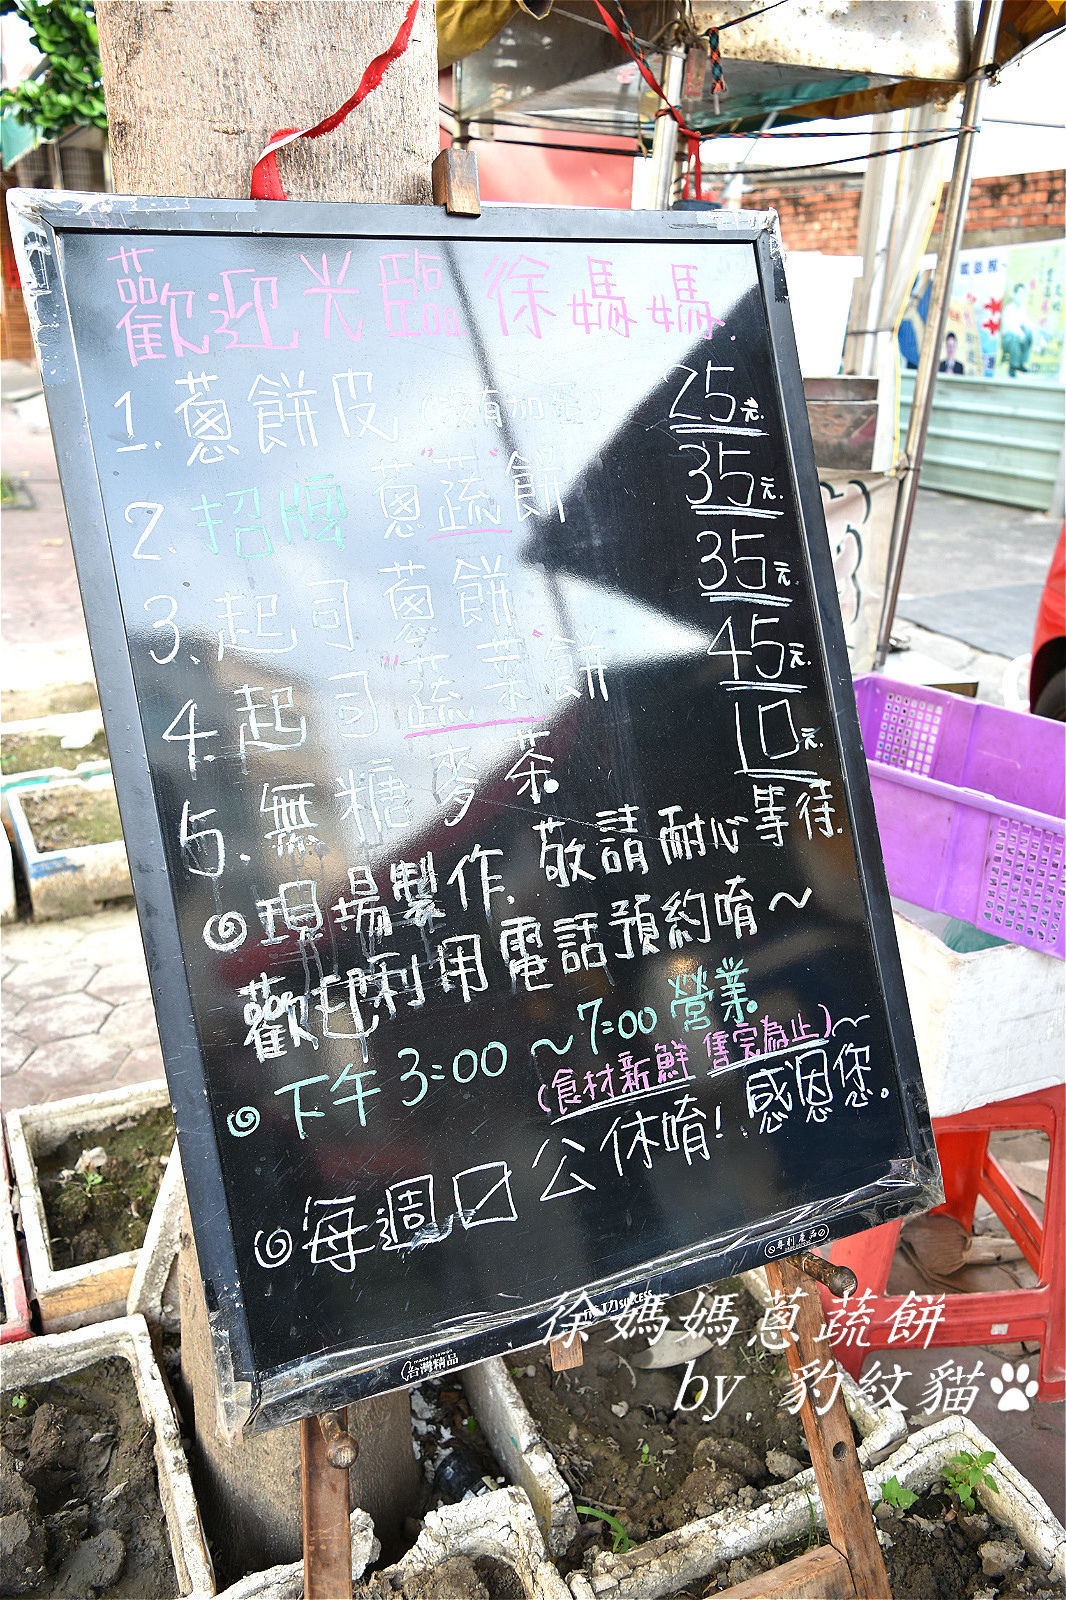 歡迎光臨 徐媽媽.
1. 蔥餅皮 (沒有加蛋) 25元
2. 招牌 蔥"蔬"餅 35元
3. 起司 蔥餅 35元
4. 起司"蔬菜"餅 45元
5. 無糖麥茶 10元
現場製作, 敬請耐心等待.
歡迎利用電話預約唷~
下午 3:00 ~ 7:00 營業
(食材新鮮 售完為止)~
每週日公休唷! 感恩您.
專利產品
成功 SUCCESS
MADE IN TAIWAN
台灣精品
徐媽媽蔥蔬餅
by 豹紋貓